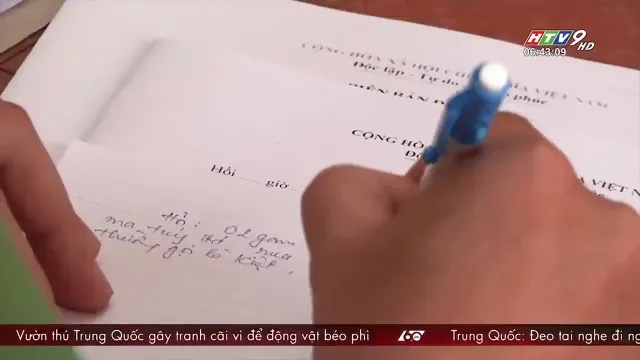 HTV9 HD
06:43:09
CỘNG HÒA XÃ HỘI CH ĨA VIỆT NAM
Độc lập - Tự do phúc
CỘNG HÒ A VIỆT N
Hồi ..... giờ
Hỏi: 02 gam
ma túy đó mua
thường gọi là Kiệt,
Vườn thú Trung Quốc gây tranh cãi vì để động vật béo phì
60
Trung Quốc: Đeo tai nghe đi ng